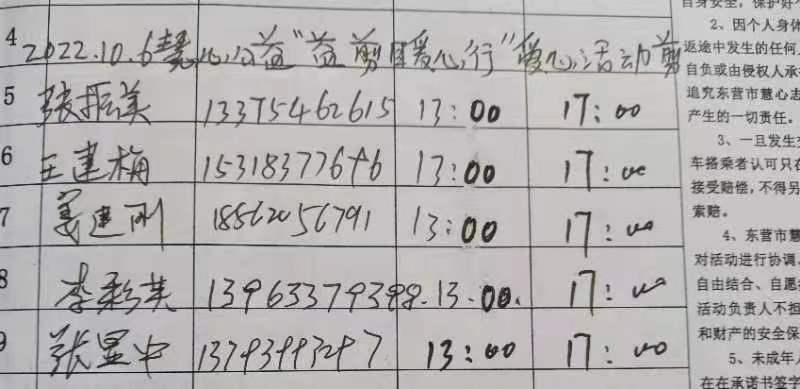 4 2022.10.6慧心公益"益剪暖心行"爱心活动剪
5 张振英 13375462615 13:00 17:00
6 王建梅 15318377676 13:00 17:00
7 姜建刚 18562056791 13:00 17:00
8 李彩英 13963379398. 13.00. 17:00
9 张呈中 13:00 17:00
自身安全，保护好
2、因个人身体
返途中发生的任何
自负或由侵权人承
追究东营市慧心志
产生的一切责任。
3、一旦发生交
车搭乘者认可只在
接受赔偿，不得另
索赔。
4、东营市慧
对活动进行协调、
自由结合、自愿
活动负责人不担
和财产的安全保
5、未成年人
在在承诺书签字